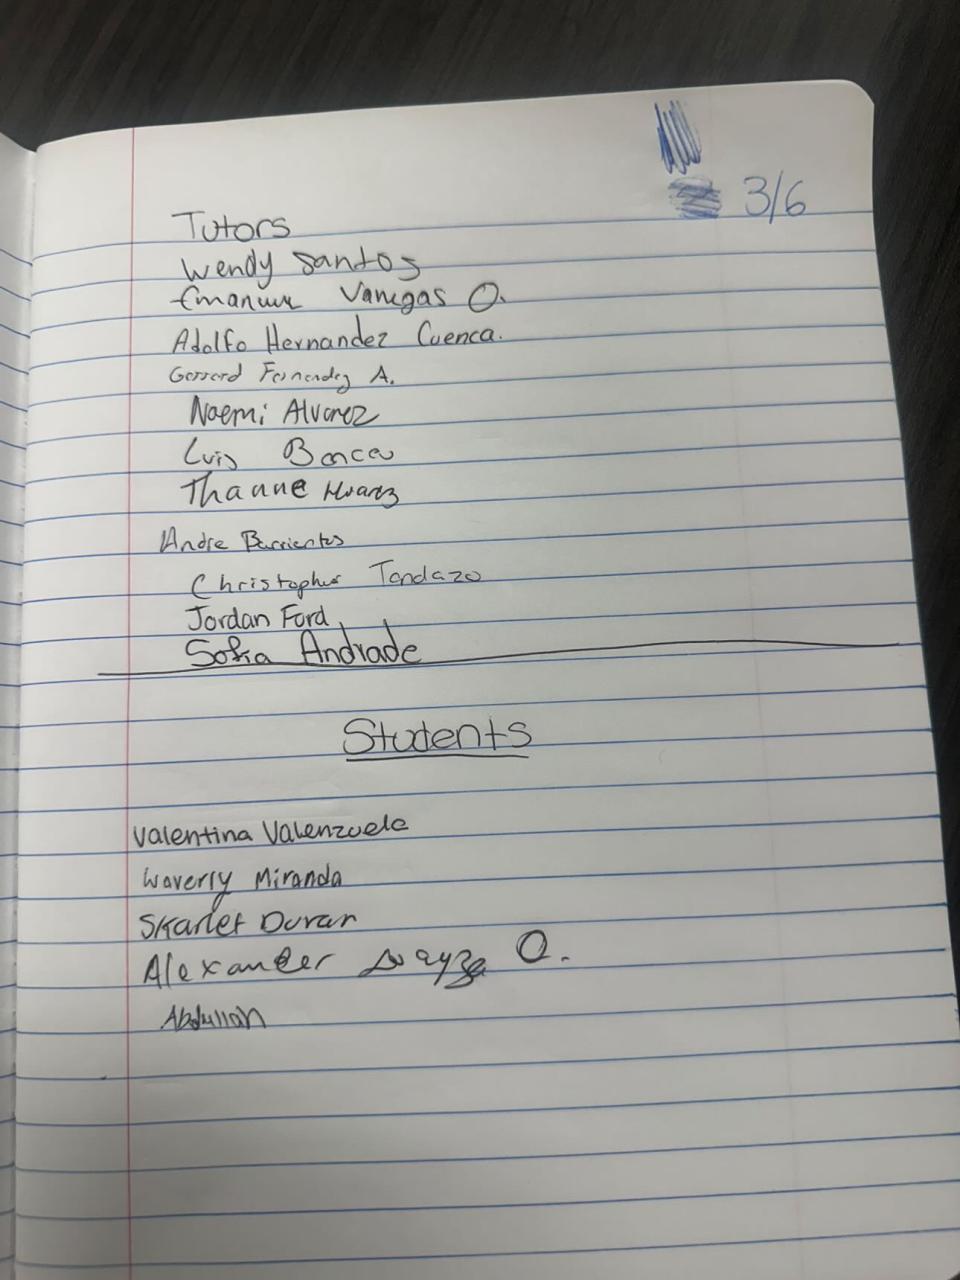 3/6
Tutors
Wendy Santos
Vanegas O.
Adolfo Hernandez Cuenca.
Gerrard Fernandez A.
Noemi Alvarez
Luis
Thanne Alvarez
Andre Barrientos
Christopher Tandazo
Jordan Ford
Sofia Andrade
Students
Valentina Valenzuela
Waverly Miranda
Skarlet Duran
Alexander O.
Abdullah